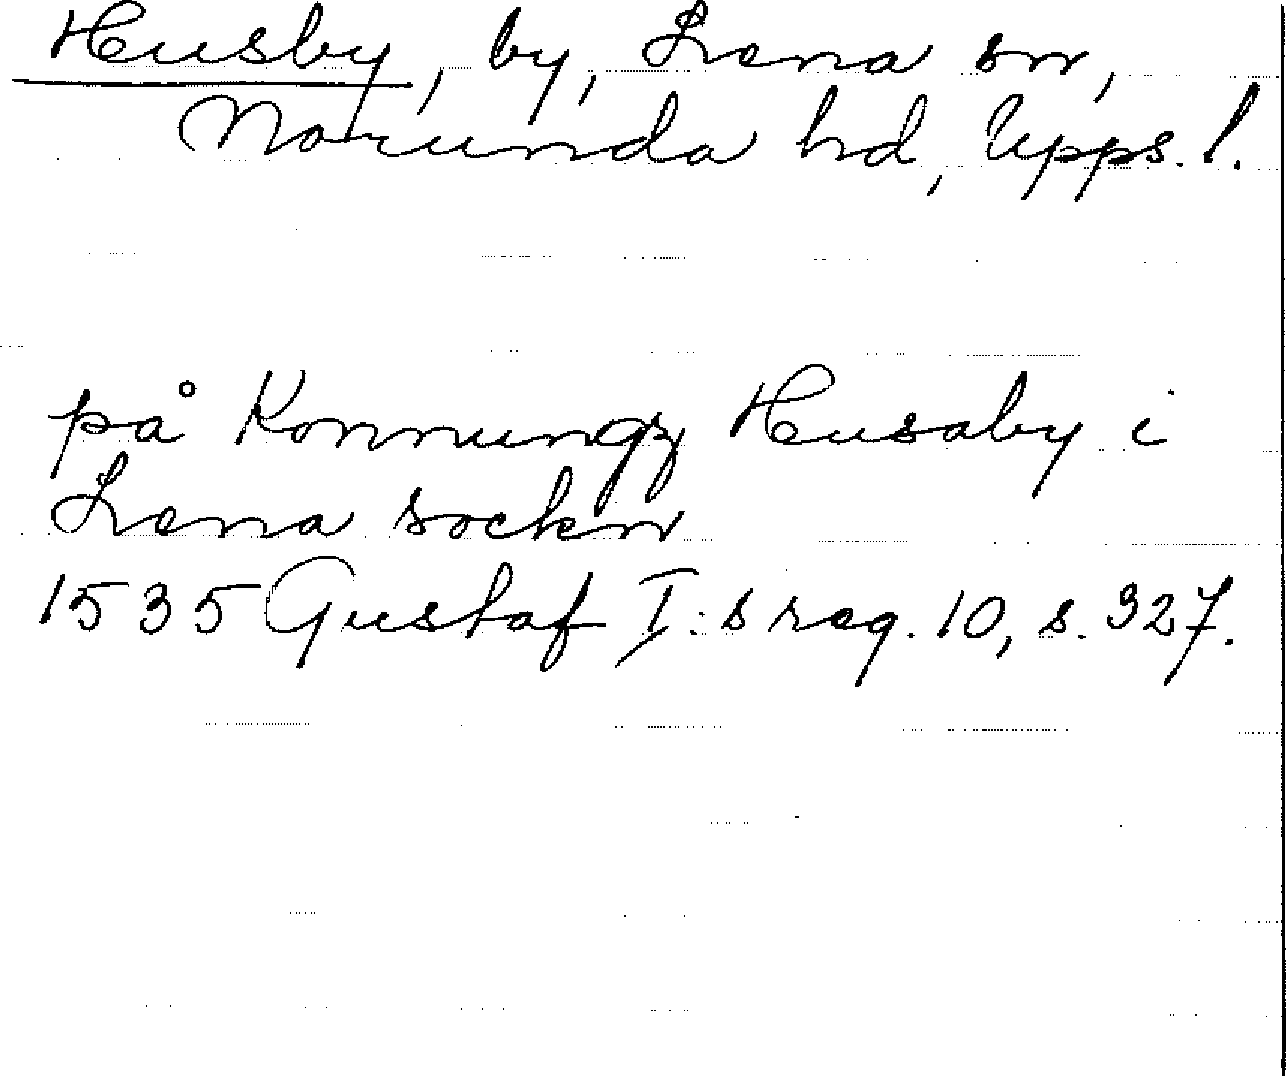 Husby, by, Lena sn,
Norunda hd, Upps. l.
på Konnungz Husaby i
Lena sockn
1535 Gustaf I:s reg. 10, s. 327.